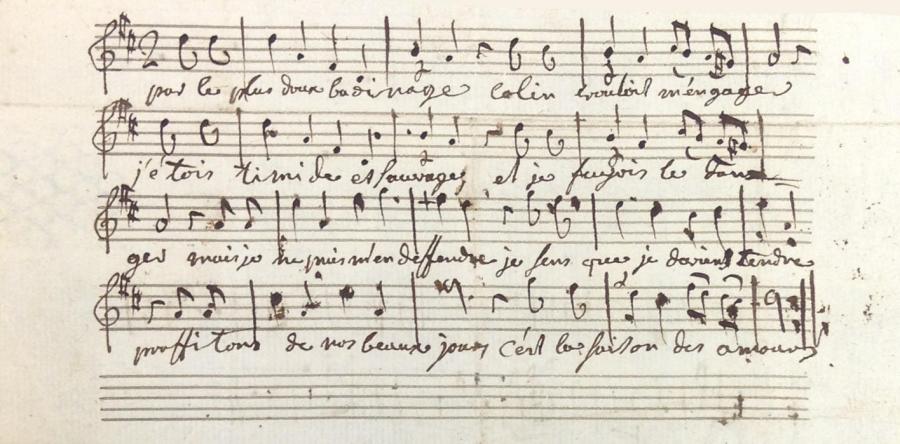 par le plus doux badinage colin vouloit m'engager
j'étois timide et sauvage et je fuyois le dan
ger mais je ne puis m'en deffendre je sens que je deviens tendre
proffitons de nos beaux jours c'est la saison des amours